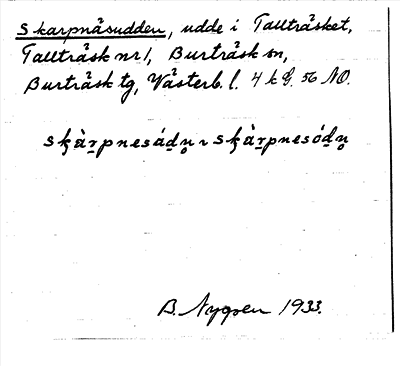 Skarpnäsudden, udde i Tallträsket,
Tallträsk nr 1, Burträsk sn,
Burträsk tg, Västerb. l. 4 k G. 56 NO.
sk̨àr̠pnesáḏn̥ ~ sk̨àr̠pnesóḏn̥
B. Nygren 1933.